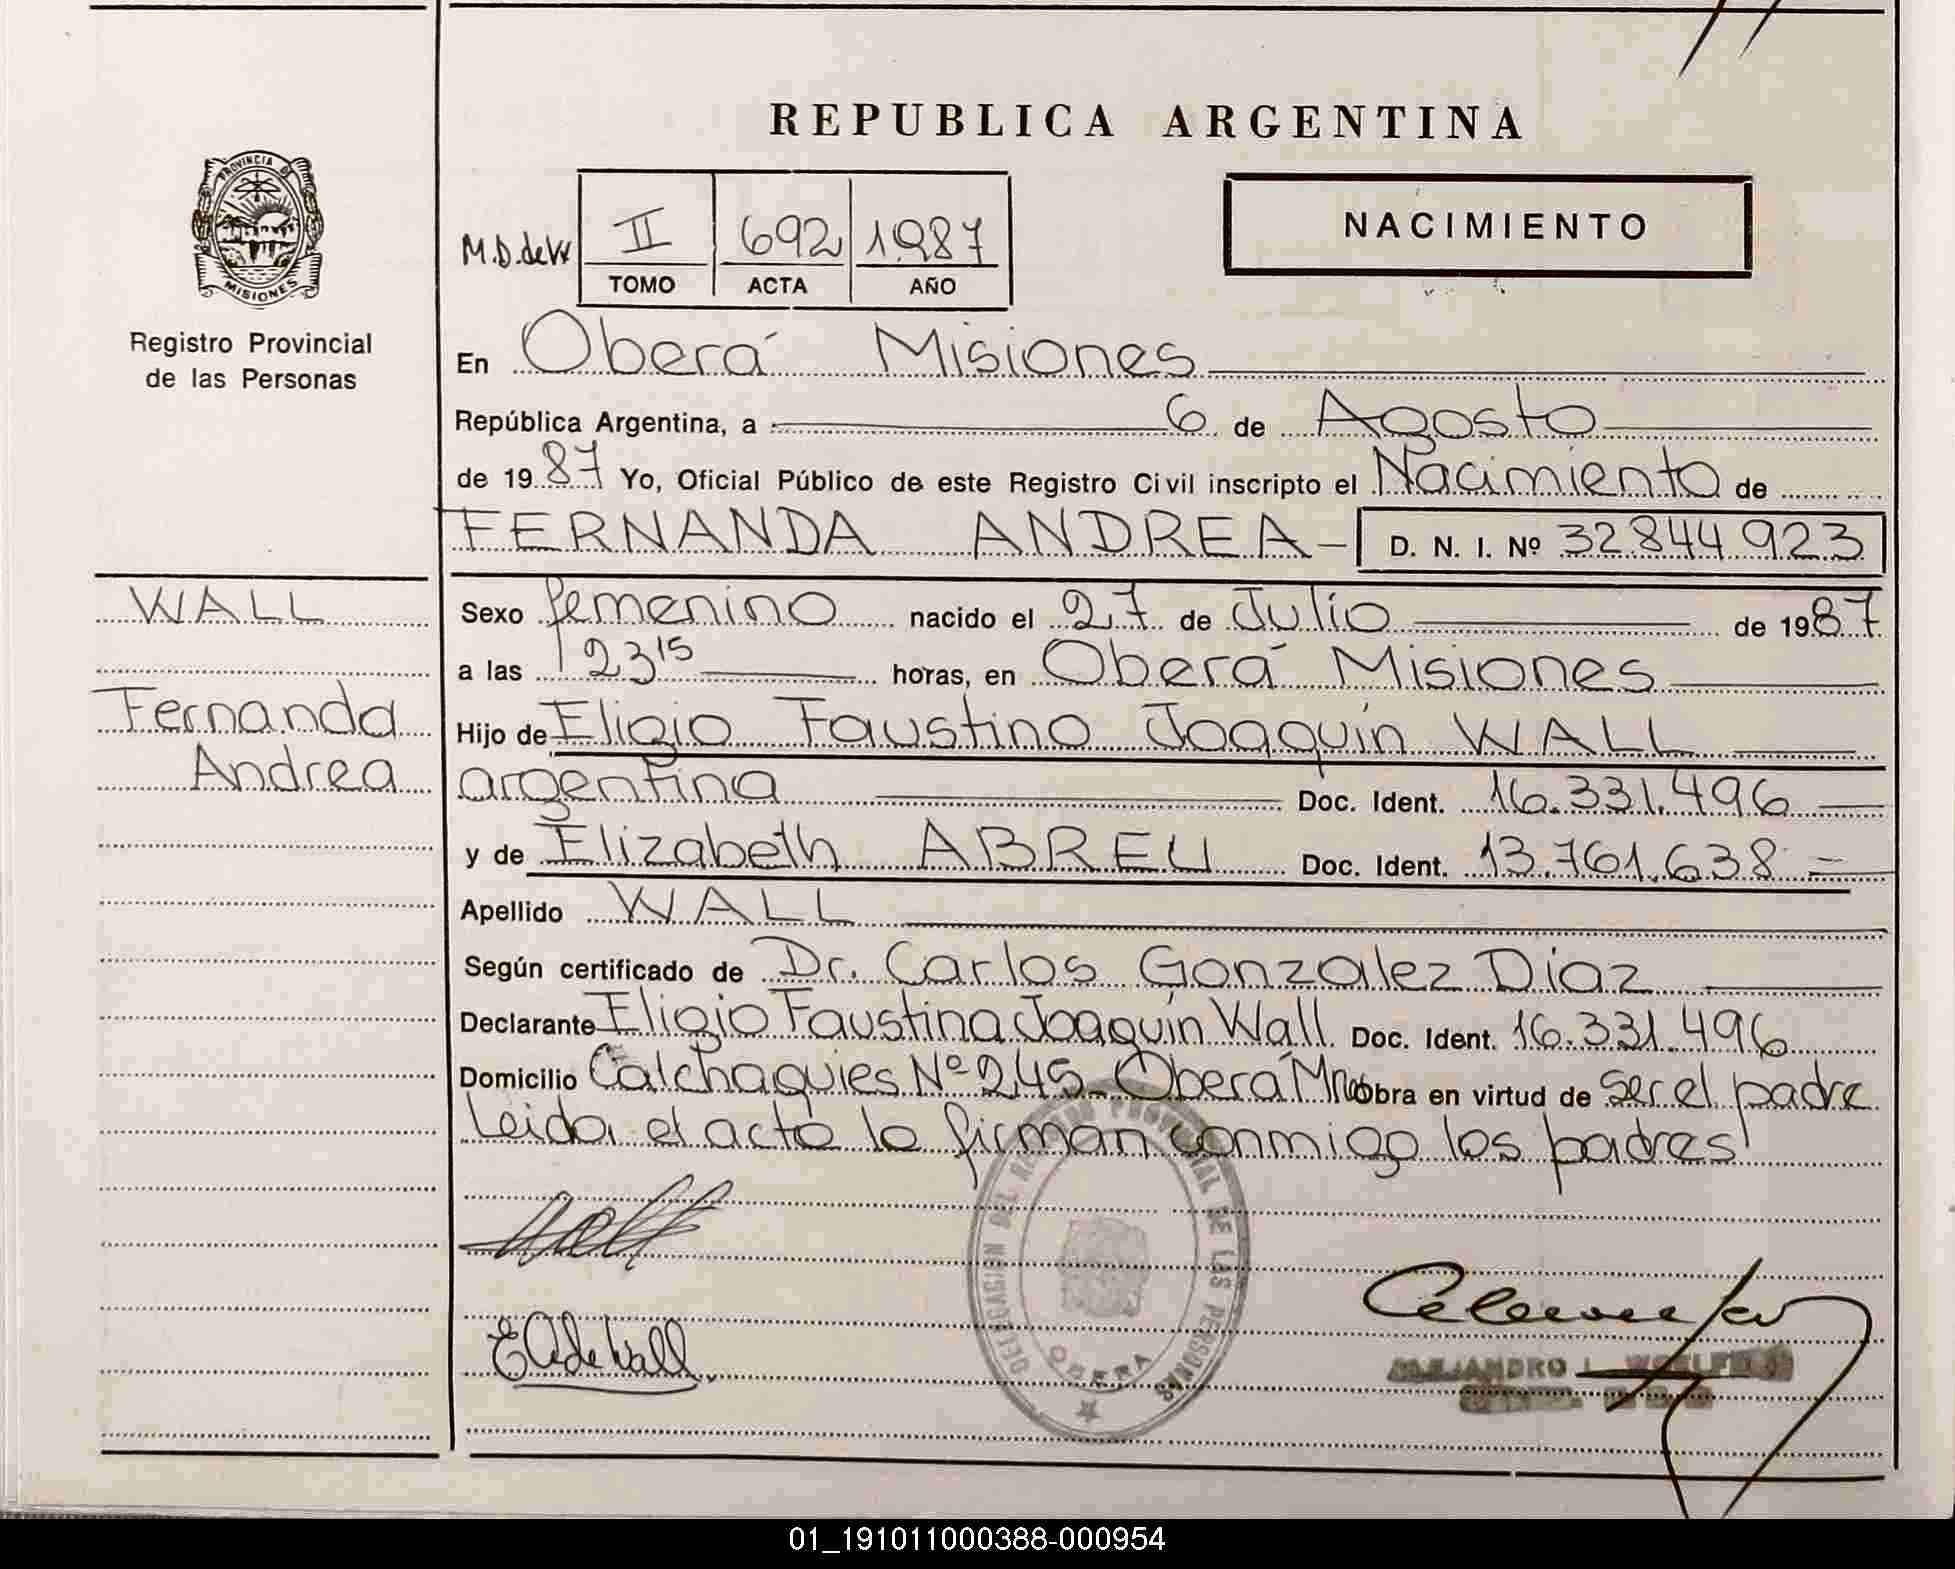 REPUBLICA ARGENTINA
PROVINCIA DE
MISIONES
Registro Provincial
de las Personas
M.D. de W
II 692 1987
TOMO ACTA AÑO
NACIMIENTO
En Oberá Misiones
República Argentina, a 6 de Agosto
de 1987 Yo, Oficial Público de este Registro Civil inscripto el Nacimiento de
FERNANDA ANDREA- D. N. I. Nº 32844923
WALL
Fernanda
Andrea
Sexo femenino nacido el 27 de Julio de 1987
a las 23 15 horas, en Oberá Misiones
Hijo de Eligio Faustino Joaquín WALL
argentina Doc. Ident. 16.331.496
y de Elizabeth ABREU Doc. Ident. 13.761.638
Apellido WALL
Según certificado de Dr. Carlos Gonzalez Díaz
Declarante Eligio Faustino Joaquín Wall Doc. Ident. 16.331.496
Domicilio Calchaquies Nº 245 Oberá Mnes obra en virtud de ser el padre
Leida el acta la firman conmigo los padres
DELEGACION DEL REGISTRO PROVINCIAL DE LAS PERSONAS
OBERA
E A de Wall
ALEJANDRO
01_191011000388-000954